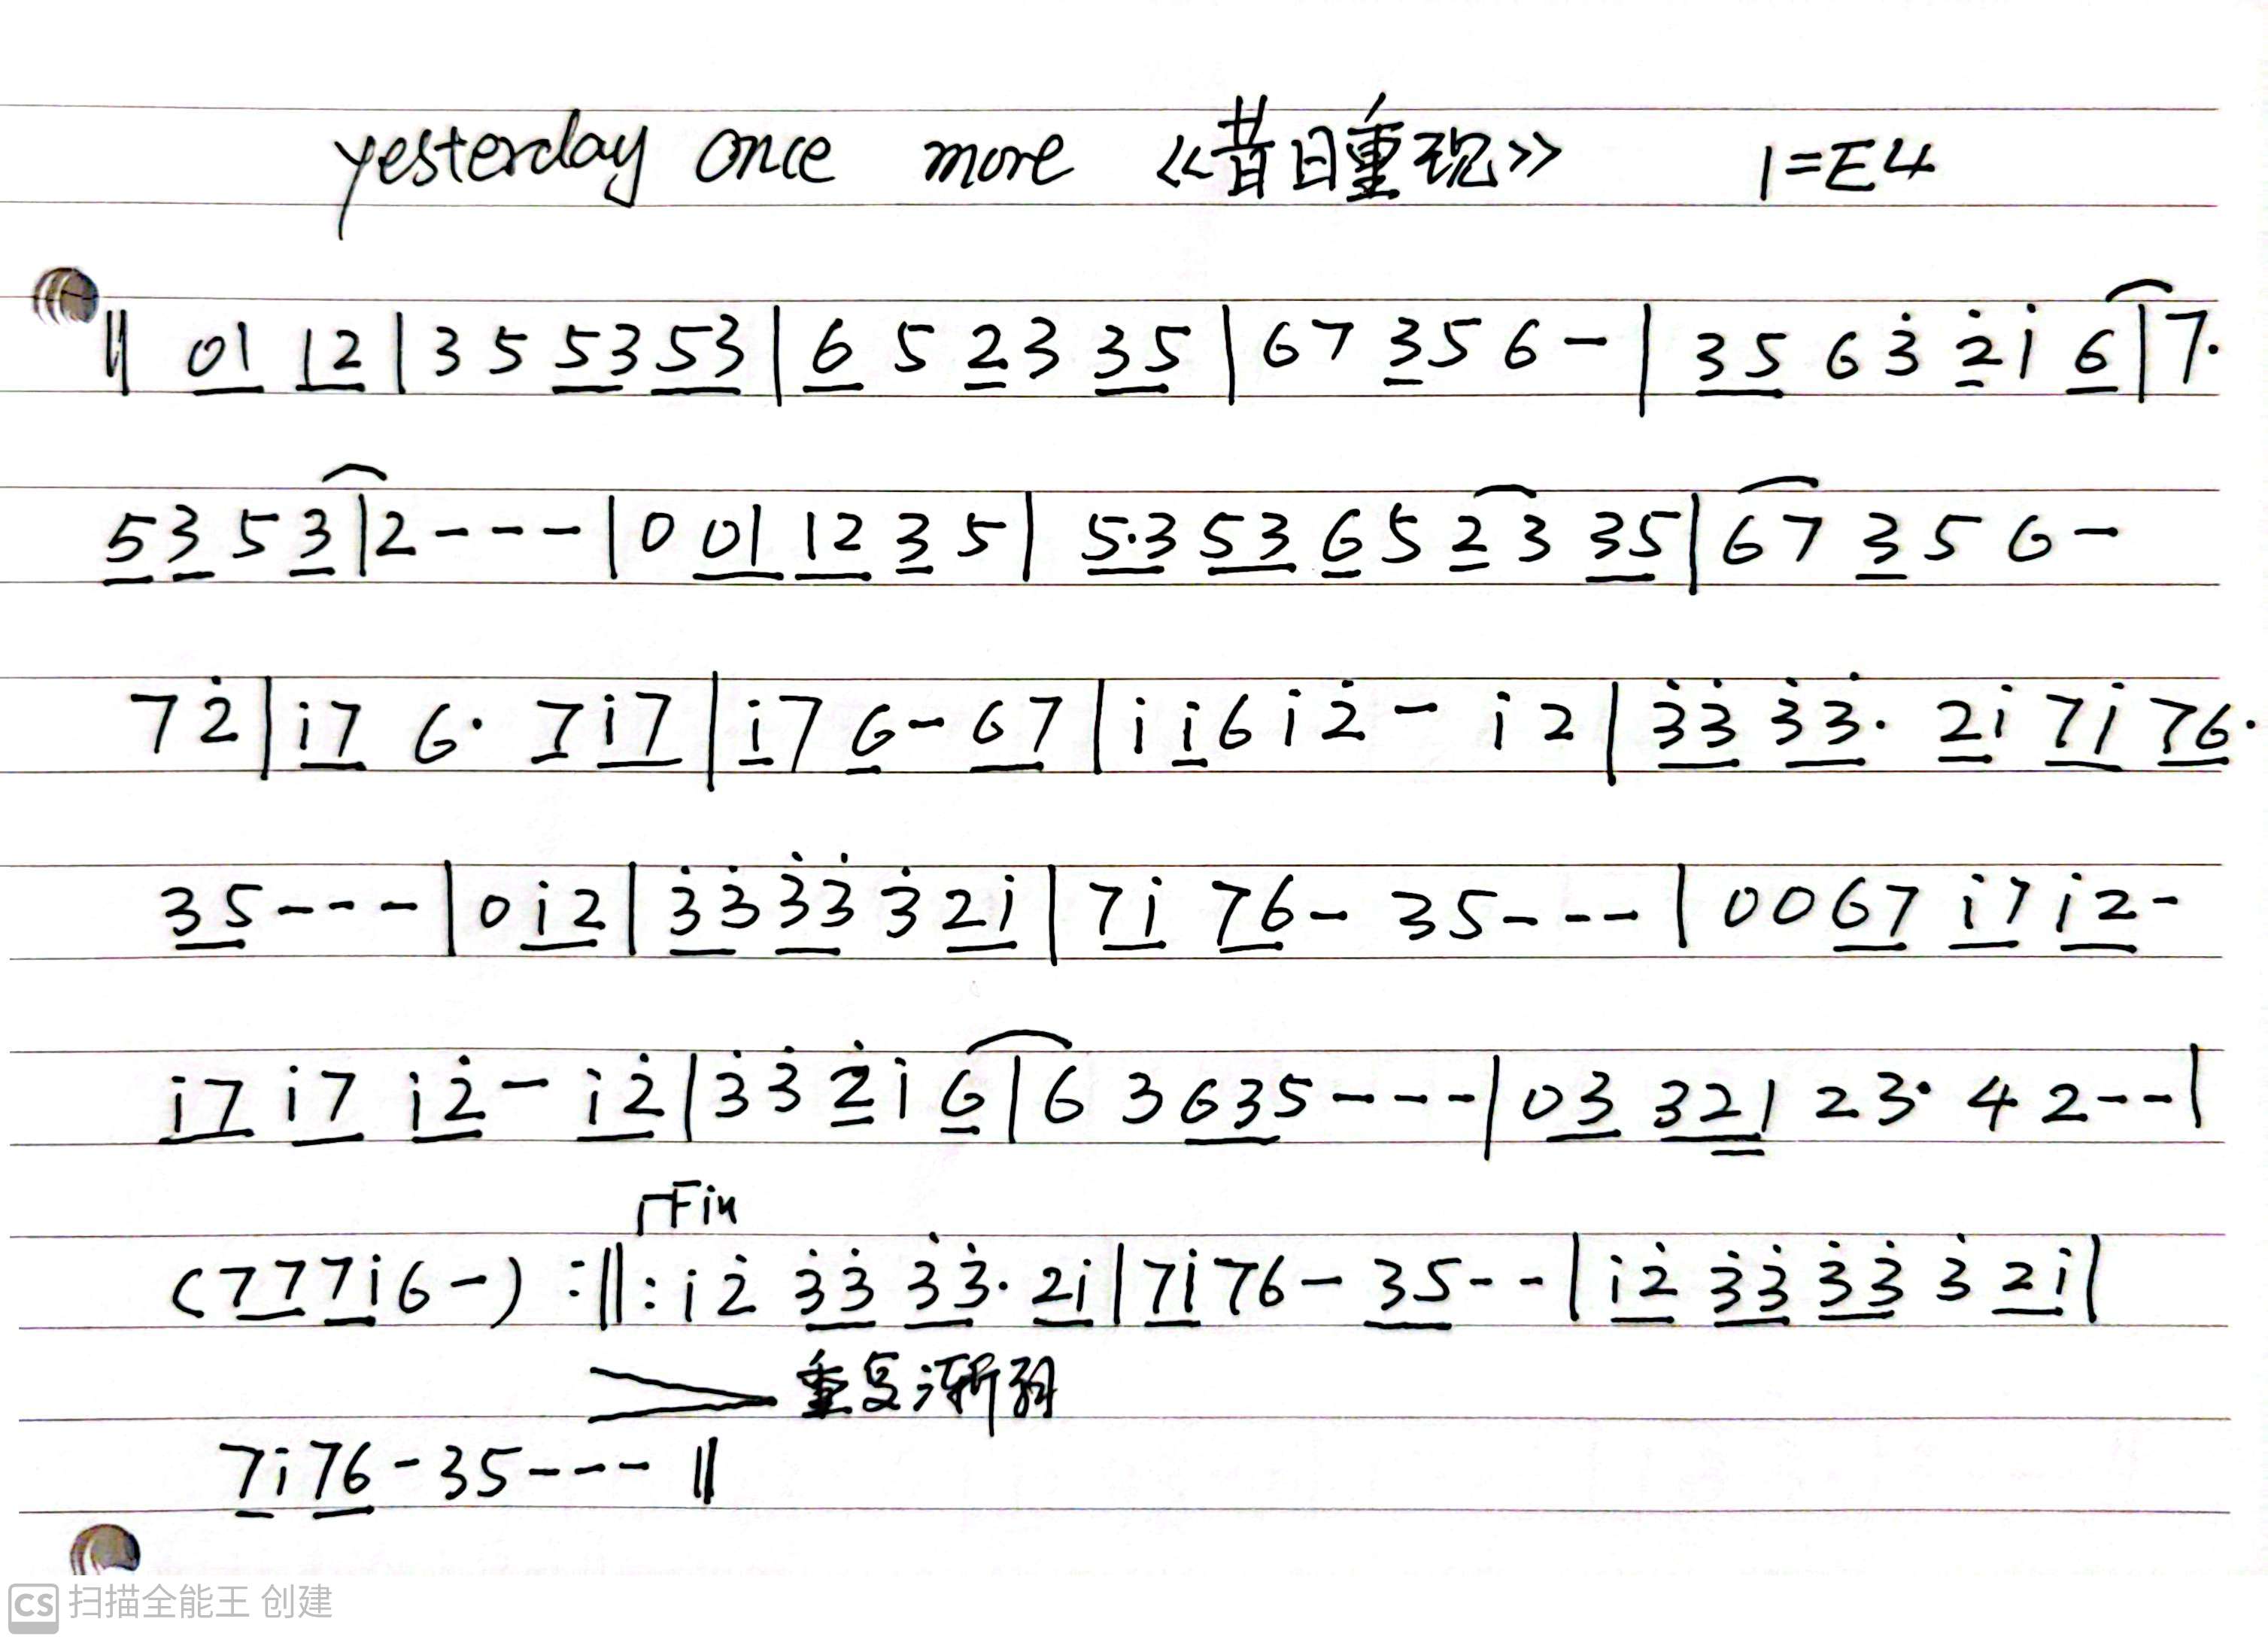 yesterday once more 《昔日重现》 1=E4
‖ 01 12 | 3 5 53 53 | 6 5 2 3 35 | 67 3 5 6 - | 35 6 3̇ 2̇ i 6 | 7·
5 3 5 3 | 2 - - - | 0 01 12 3 5 | 5·3 53 6 5 2 3 35 | 6 7 3 5 6 -
7 2̇ | i7 6· 7 i7 | i 7 6 - 67 | i i 6 i 2̇ - i 2 | 3̇3̇ 3̇3̇· 2i 7i 76·
35 - - - | 0 i2 | 3̇3̇ 3̇3̇ 3̇ 2i | 7i 76 - 35 - - - | 00 67 i7 i2 -
i7 i7 i2̇ - i2̇ | 3̇ 3̇ 2̇ i 6 | 6 3 635 - - - | 03 321 23· 4 2 - - |
Fin
(77 7i 6 -) :‖: i 2̇ 3̇3̇ 3̇3̇· 2i | 7i 76 - 35 - - | i2̇ 3̇3̇ 3̇3̇ 3̇ 2i |
重复渐弱
7i 76 - 35 - - - ‖
CS 扫描全能王 创建